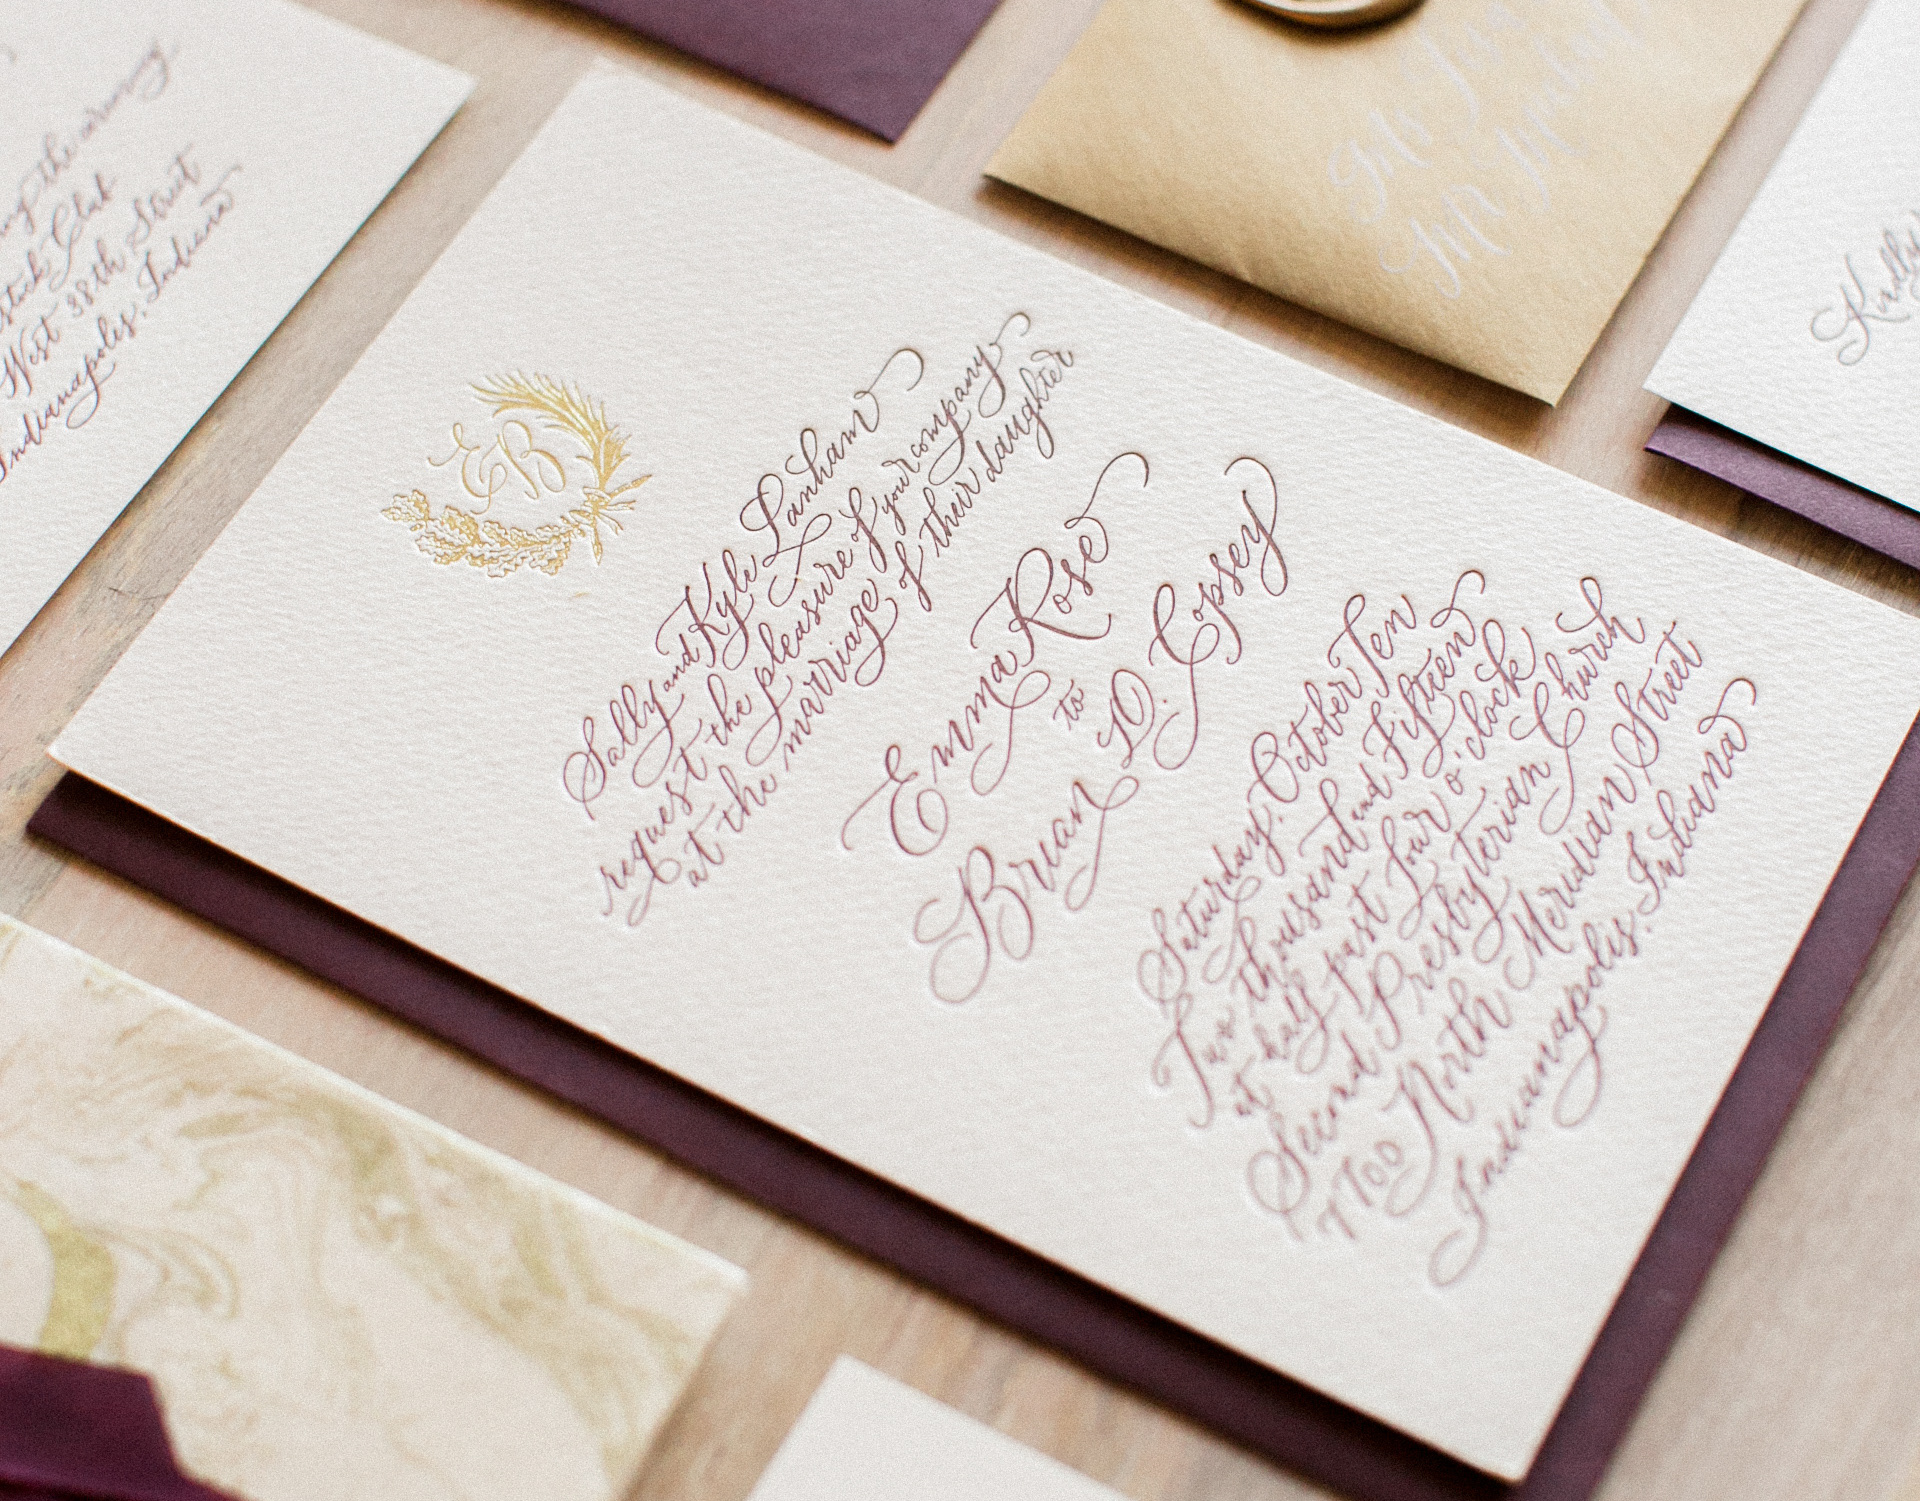 EB
Sally and Kyle Lanham
request the pleasure of your company
at the marriage of their daughter
Emma Rose
to
Brian D. Copsey
Saturday, October Ten
Two thousand and Fifteen
at half past four o'clock
Second Presbyterian Church
7700 North Meridian Street
Indianapolis, Indiana
the
Club
West 38th Street
Indianapolis, Indiana
Kindly